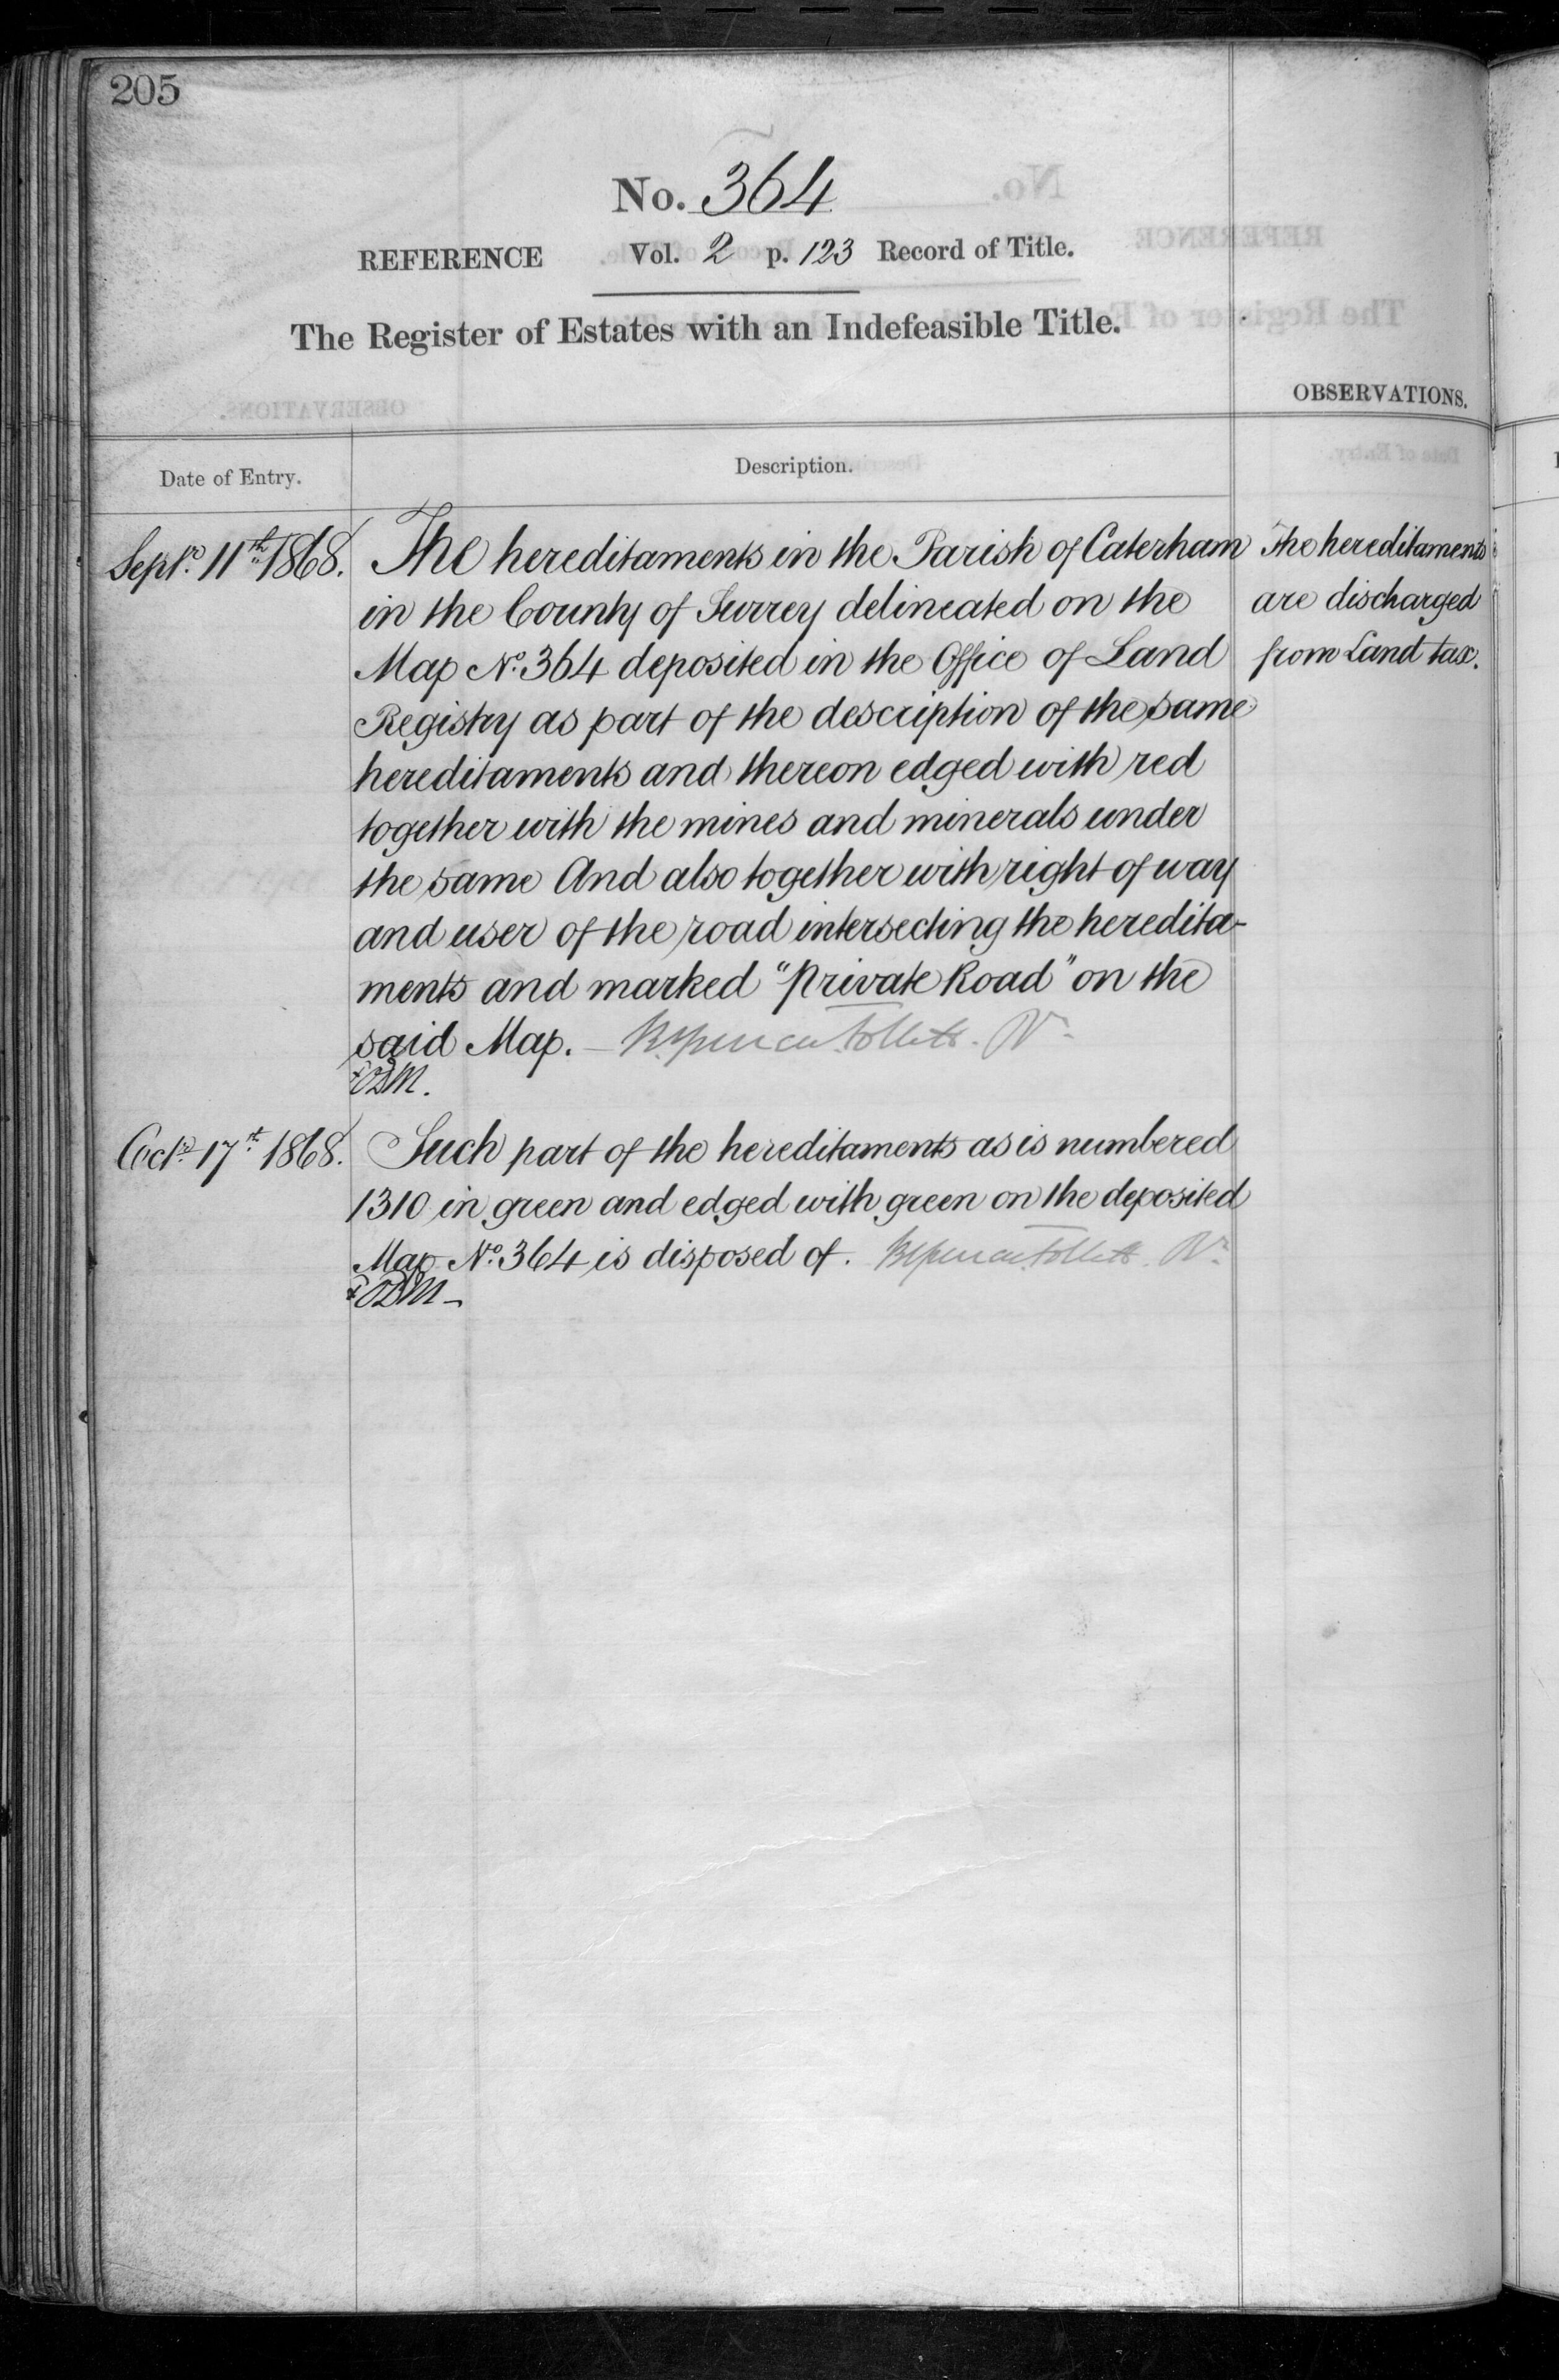 205
No. 364
REFERENCE Vol. 2 p. 123 Record of Title.
The Register of Estates with an Indefeasible Title.
OBSERVATIONS.
Date of Entry.
Description.
Septr. 11th 1868.
The hereditaments in the Parish of Caterham
in the County of Surrey delineated on the
Map No. 364 deposited in the Office of Land
Registry as part of the description of the same
hereditaments and thereon edged with red
together with the mines and minerals under
the same And also together with right of way
and user of the road intersecting the heredita-
ments and marked "Private Road" on the
said Map. –
The hereditaments
are discharged
from Land tax.
Octr. 17th 1868.
Such part of the hereditaments as is numbered
1310 in green and edged with green on the deposited
Map No. 364 is disposed of.